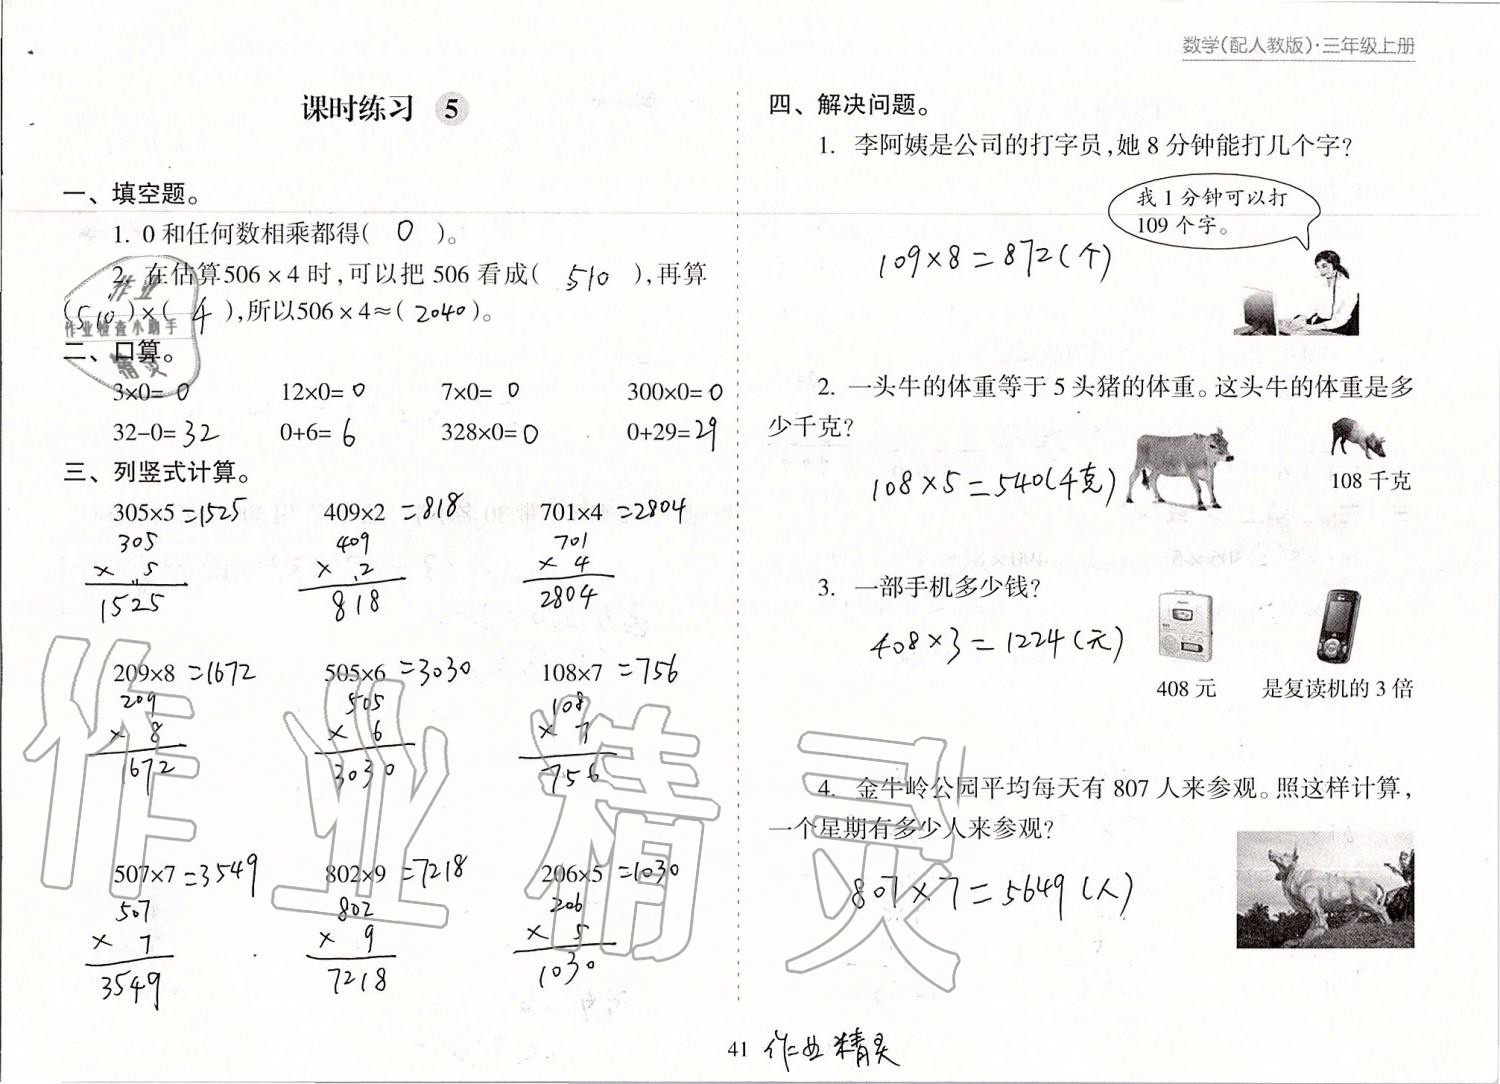 数学(配人教版)·三年级上册
课时练习 5
一、填空题。
1. 0 和任何数相乘都得( 0 )。
2. 在估算506×4 时,可以把 506 看成( 510 ),再算
(510)×( 4 ),所以506×4≈( 2040 )。
二、口算。
3×0= 0 12×0= 0 7×0= 0 300×0=0
32-0= 32 0+6= 6 328×0=0 0+29=29
三、列竖式计算。
305×5=1525 409×2=818 701×4=2804
305 409 701
× 5 × 2 × 4
1525 818 2804
209×8=1672 505×6=3030 108×7=756
209 505 108
× 8 × 6 × 7
1672 3030 756
507×7=3549 802×9=7218 206×5=1030
507 802 206
× 7 × 9 × 5
3549 7218 1030
四、解决问题。
1. 李阿姨是公司的打字员,她 8 分钟能打几个字?
我 1 分钟可以打
109 个字。
109×8=872(个)
2. 一头牛的体重等于 5 头猪的体重。这头牛的体重是多
少千克?
108×5=540(千克)
108 千克
3. 一部手机多少钱?
408×3=1224(元)
408 元 是复读机的 3 倍
4. 金牛岭公园平均每天有 807 人来参观。照这样计算,
一个星期有多少人来参观?
807×7=5649(人)
41 作业精灵
作业
作业检查小助手
精灵
作业精灵